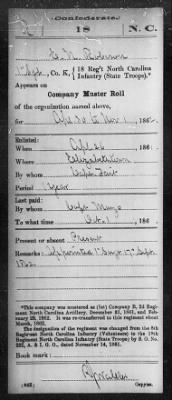 Confederate.
18 N.C.
Robeson
1" Sergt, Co. K, 18 Reg't North Carolina
Infantry (State Troops).*
Appears on
Company Muster Roll
of the organization named above,
for Apl 30 to Nov 1, 186
Enlisted:
When Apl 26, 186
Where Elizabethtown
By whom Capt
Period 1 year
Last paid:
By whom
To what time Oct 1, 186
Present or absent Present
Remarks: 1" Sergt Sept
1862
*This company was mustered as (1st) Company B, 2d Regiment North Carolina Artillery, December 31, 1861, and February 28, 1862. It was re-transferred to this regiment about March, 1862.
The designation of this regiment was changed from the 8th Regiment North Carolina Infantry (Volunteers) to the 18th Regiment North Carolina Infantry (State Troops) by S. O. No. 222, A. & I. G. O., dated November 14, 1861.
Book mark:
(642) Copyist.